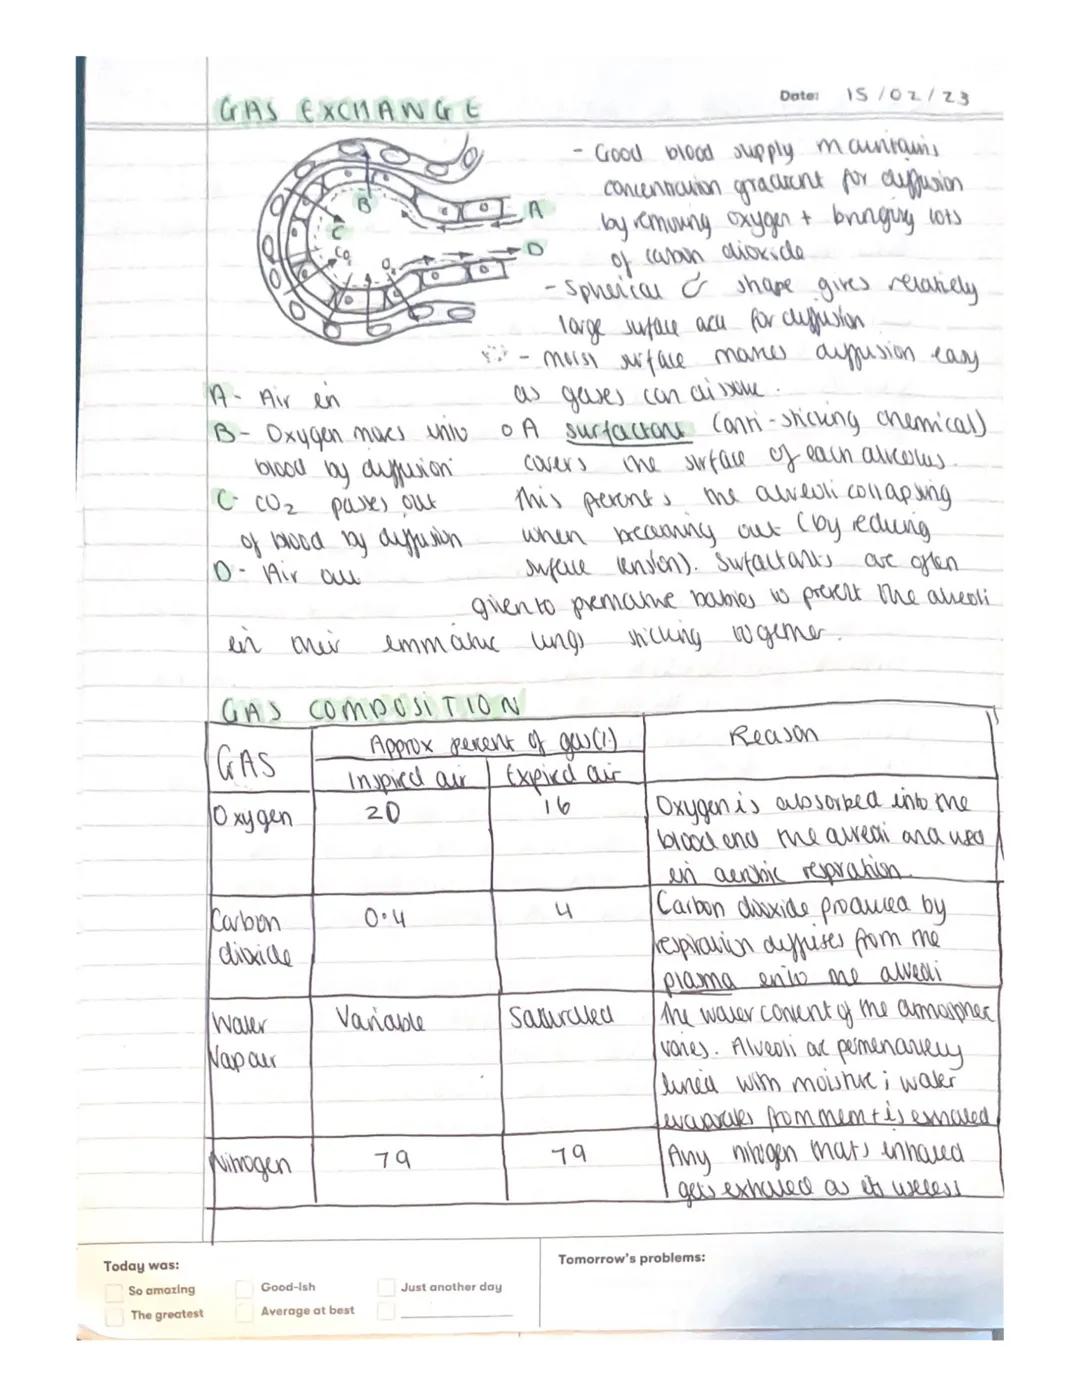 GAS EXCHANGE
Date: 15/02/23
- Good blood supply maintains
concentration gradient for diffusion
by removing oxygen + bringing lots
of carbon dioxide
- Spherical shape gives relatively
large surface area for diffusion
- moist surface makes diffusion easy
as gases can dissolve.
B
C
CO2
O2
A
D
A - Air in
B - Oxygen moves into
blood by diffusion
C - CO2 passes out
of blood by diffusion
D - Air out
o A surfactant (anti-sticking chemical)
covers the surface of each alveolus.
This prevents the alveoli collapsing
when breathing out (by reducing
surface tension). Surfactants are often
given to premature babies to prevent the alveoli
in their immature lungs sticking together.
GAS COMPOSITION
GAS
Approx percent of gas(%)
Reason
Inspired air
Expired air
Oxygen
20
16
Oxygen is absorbed into the
blood and the alveoli and used
in aerobic respiration.
Carbon
dioxide
0.4
4
Carbon dioxide produced by
respiration diffuses from the
plasma into the alveoli
Water
Vapour
Variable
Saturated
The water content of the atmosphere
varies. Alveoli are permenantely
lined with moisture; water
evaporates from them + is exhaled
Nitrogen
79
79
Any nitrogen thats inhaled
gets exhaled as its useless
Today was:
So amazing
Good-ish
Just another day
The greatest
Average at best
Tomorrow's problems: